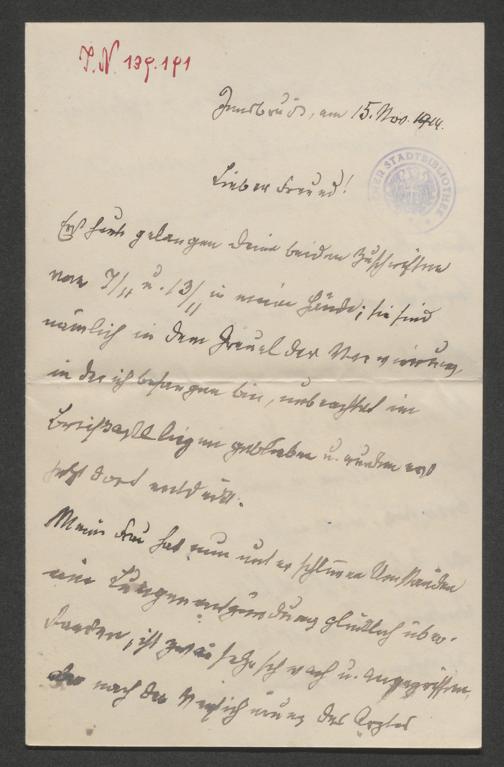 I.N. 139.191
Innsbruck, am 15. Nov. 1914.
STADTBIBLIOTHEK
Lieber Freund!
Erst heute gelangen Deine beiden Zuschriften
vom 7/11 u. 13/11 in meine Hände; sie sind
nämlich in dem Greuel der Verwirrung,
in der ich befangen bin, unbeachtet im
liegen geblieben u. wurden erst
jetzt dort entdeckt.
Meine Frau hat nun unter schlimmen Umständen
eine Lungenentzündung glücklich über-
standen, ist zwar sehr schwach u. angegriffen,
aber nach der Versicherung des Arztes